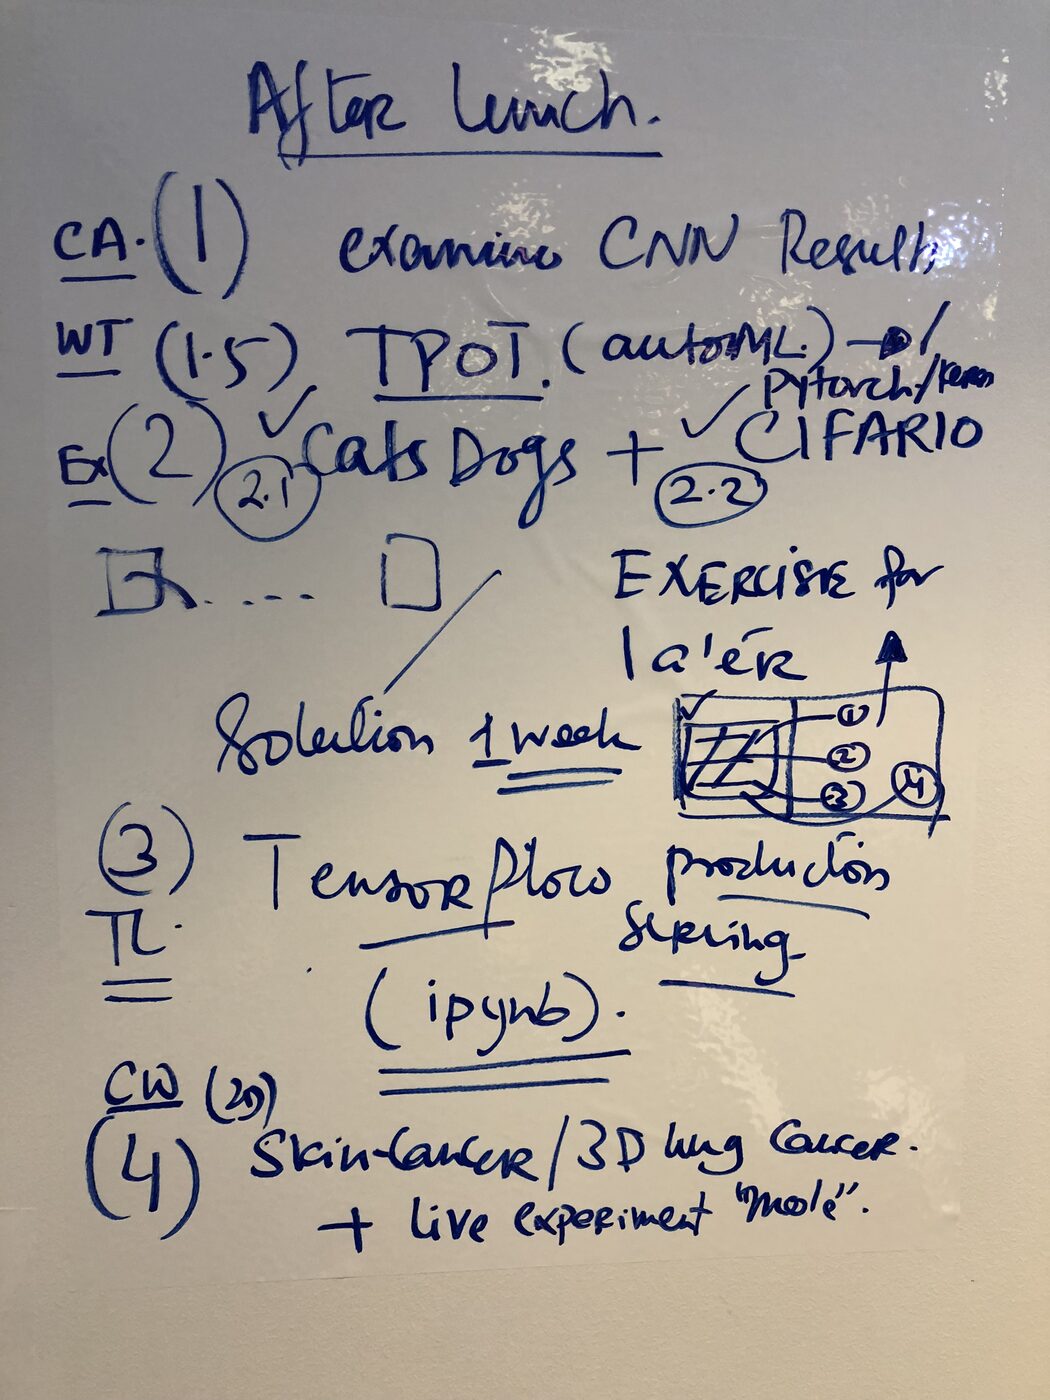 After Lunch.
CA. (1) examine CNN Results
WT (1.5) TPOT. (autoML) → /
Pytorch/Keras
Ex (2) ✓ Cats Dogs + ✓ CIFAR10
2.1 2.2
EXERCISE for
later
Solution 1 week
✓ 1
2
3 4
(3) Tensorflow production
TL. Serving
(ipynb).
CW (20)
(4) Skin-Cancer/3D lung Cancer.
+ Live experiment "mole".